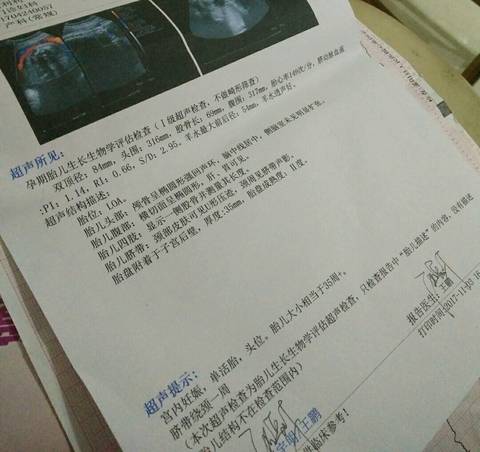 产科(常规)
超声所见:
孕期胎儿生长生物学评估检查(Ⅰ级超声检查,不做畸形筛查)
双顶径: 84mm, 头围: 316mm, 股骨长: 69mm, 腹围: 317mm, 胎心率149次/分, 脐动脉血流
:PI: 1.14, RI: 0.66, S/D: 2.95, 羊水最大前后径: 54mm, 羊水透声好。
超声结构描述:
胎位: LOA。
胎儿头部: 颅骨呈椭圆形强回声环, 脑中线居中, 侧脑室未见明显扩张。
胎儿腹部: 横切面呈椭圆形, 肝、胃可见。
胎儿四肢: 显示一侧股骨并测量其长度。
胎儿脐带: 颈部皮肤可见U形压迹, 颈周见脐带声影。
胎盘附着于子宫后壁, 厚度:35mm, 胎盘成熟度: Ⅱ度。
超声提示:
宫内妊娠, 单活胎, 头位。胎儿大小相当于35周+。
脐带绕颈一周
(本次超声检查为胎儿生长生物学评估超声检查, 只检查报告中“胎儿描述”的内容, 没有描述
胎儿结构不在检查范围内)
报告医生: 王鹏
打印时间:2017-11-
王鹏
供临床参考!